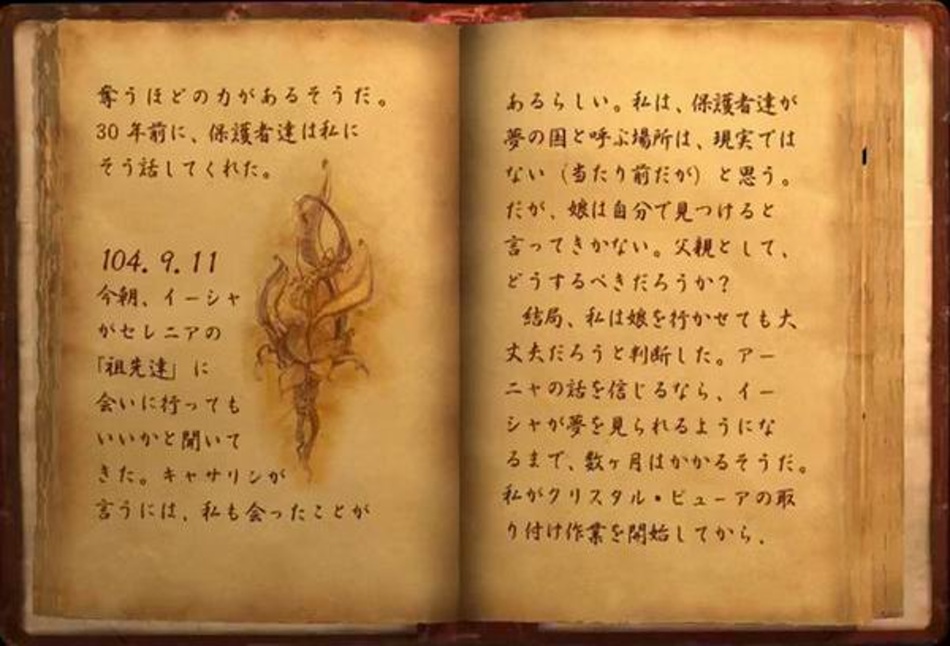 奪うほどの力があるそうだ。
30 年前に、保護者達は私に
そう話してくれた。
104. 9. 11
今朝、イーシャ
がセレニアの
「祖先達」に
会いに行っても
いいかと聞いて
きた。キャサリンが
言うには、私も会ったことが
あるらしい。私は、保護者達が
夢の国と呼ぶ場所は、現実では
ない（当たり前だが）と思う。
だが、娘は自分で見つけると
言ってきかない。父親として、
どうするべきだろうか？
結局、私は娘を行かせても大
丈夫だろうと判断した。アー
ニャの話を信じるなら、イー
シャが夢を見られるようにな
るまで、数ヶ月はかかるそうだ。
私がクリスタル・ビューアの取
り付け作業を開始してから、